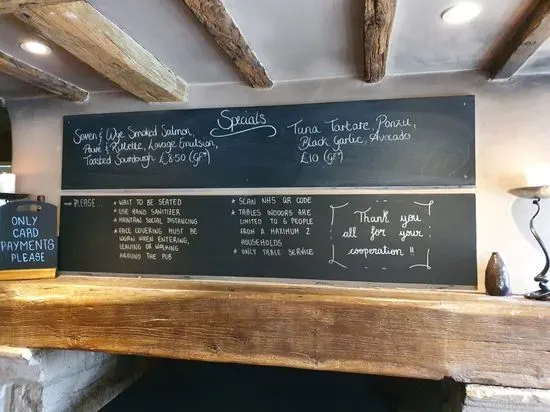 Specials
Seven & Wye Smoked Salmon,
Caviar, Lovage Emulsion,
Toasted Sourdough £8.50 (GF*)
Tuna Tartare, Ponzu,
Black Garlic, Avocado
£10 (GF*)
ONLY
CARD
PAYMENTS
PLEASE
PLEASE...
* WAIT TO BE SEATED
* USE HAND SANITIZER
* MAINTAIN SOCIAL DISTANCING
* FACE COVERING MUST BE
WORN WHEN ENTERING,
LEAVING OR WALKING
AROUND THE PUB
* SCAN NHS QR CODE
* TABLES INDOORS ARE
LIMITED TO 6 PEOPLE
FROM A MAXIMUM 2
HOUSEHOLDS
* ONLY TABLE SERVICE
Thank you
all for your
cooperation !!